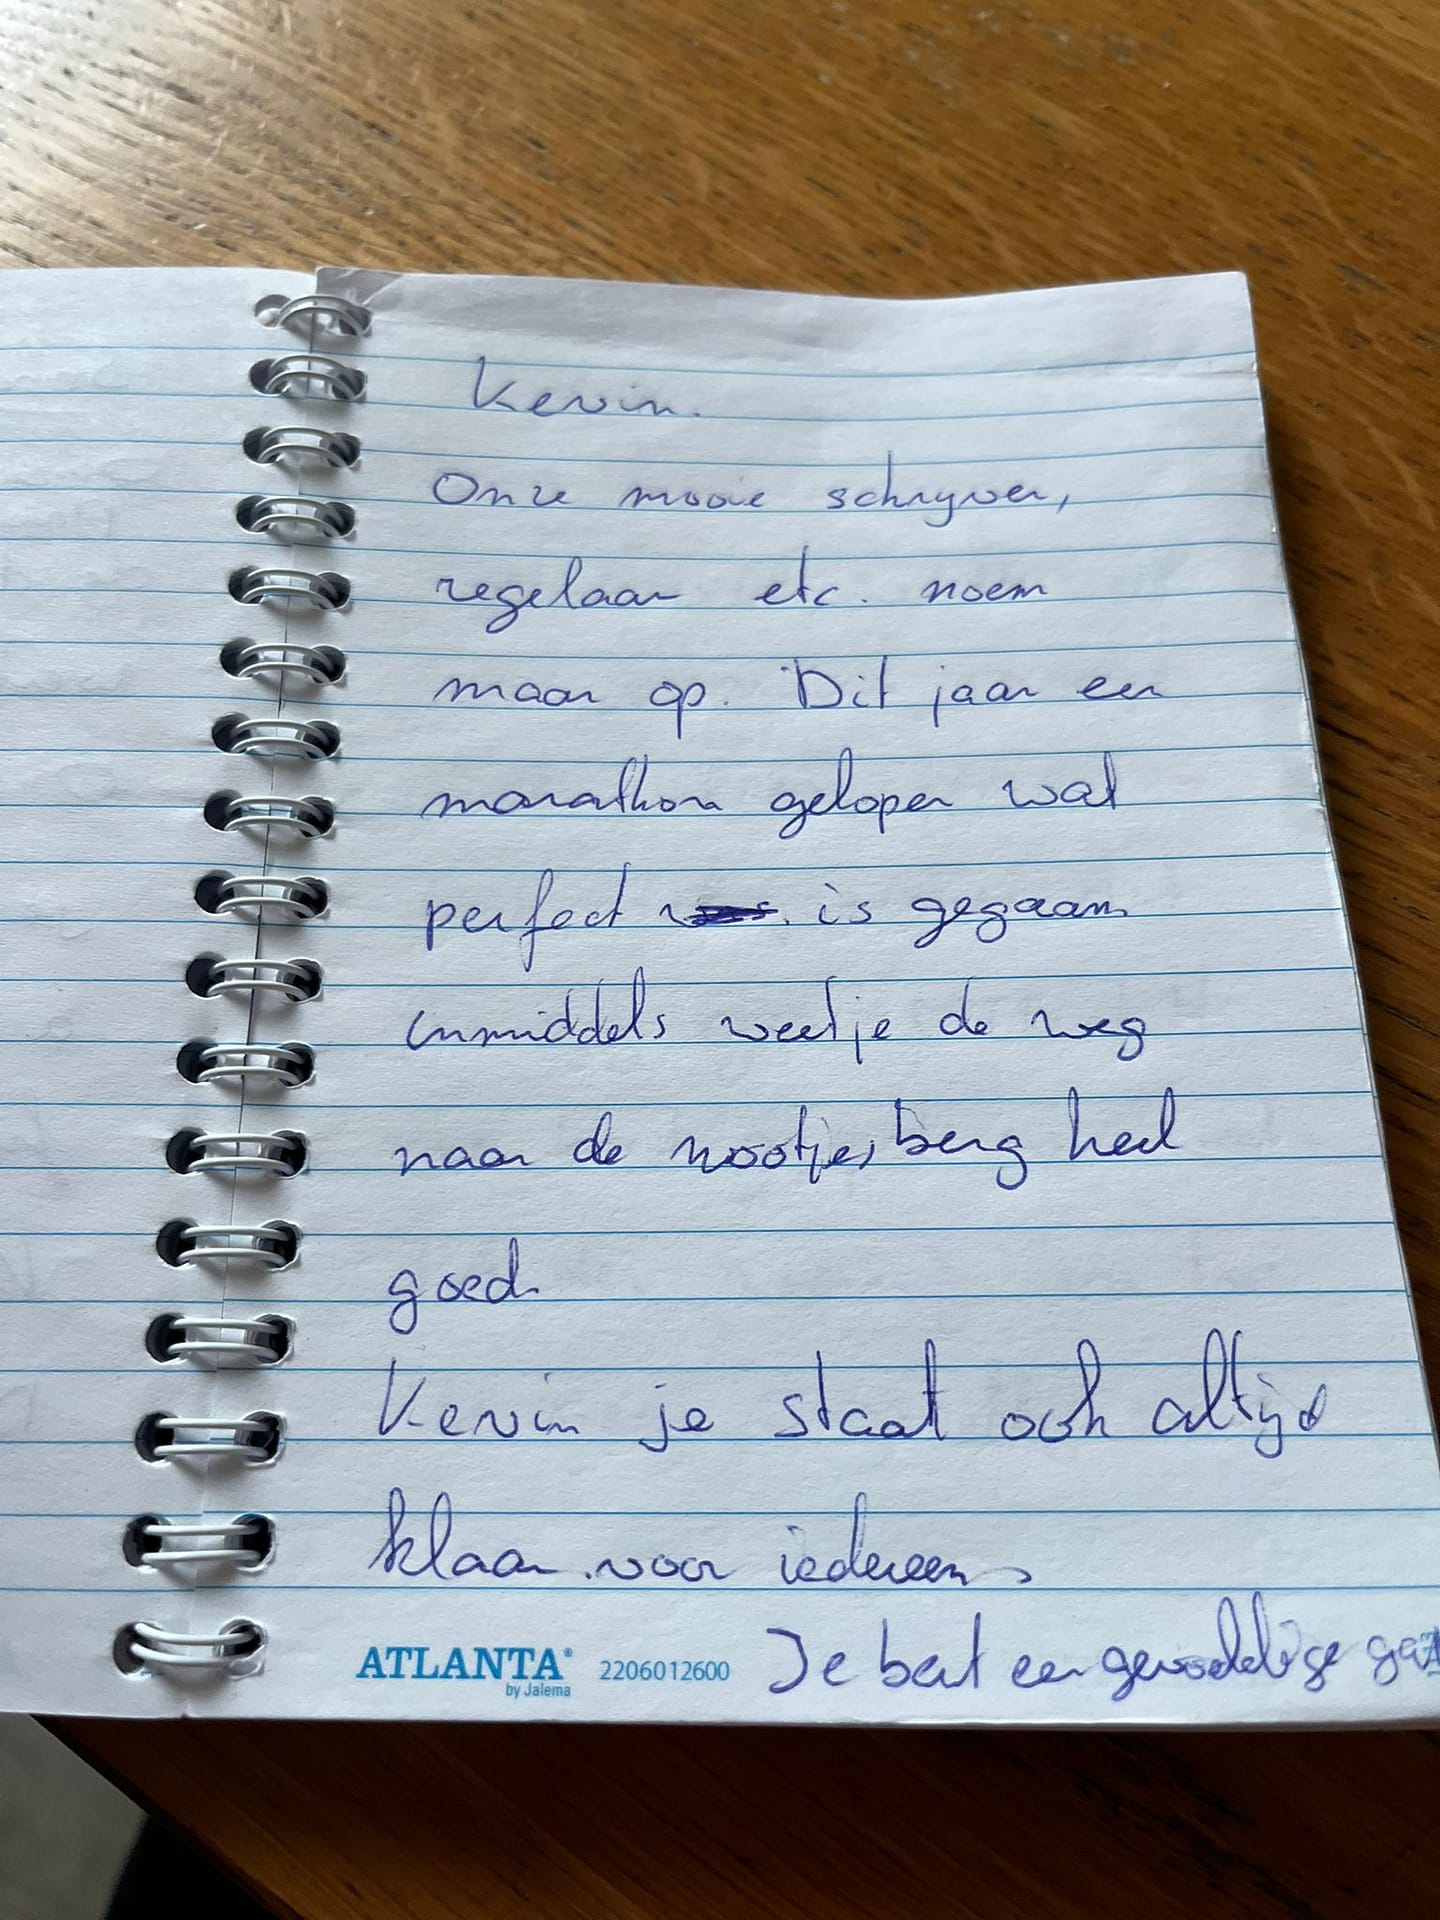 Kevin.
Onze mooie schrijver,
regelaar etc. noem
maar op. Dit jaar een
marathon gelopen wat
perfect is gegaan
inmiddels weet je de weg
naar de nootjesberg heel
goed.
Kevin je staat ook altijd
klaar voor iedereen
ATLANTA®
by Jalema
2206012600
Je bent een geweldige